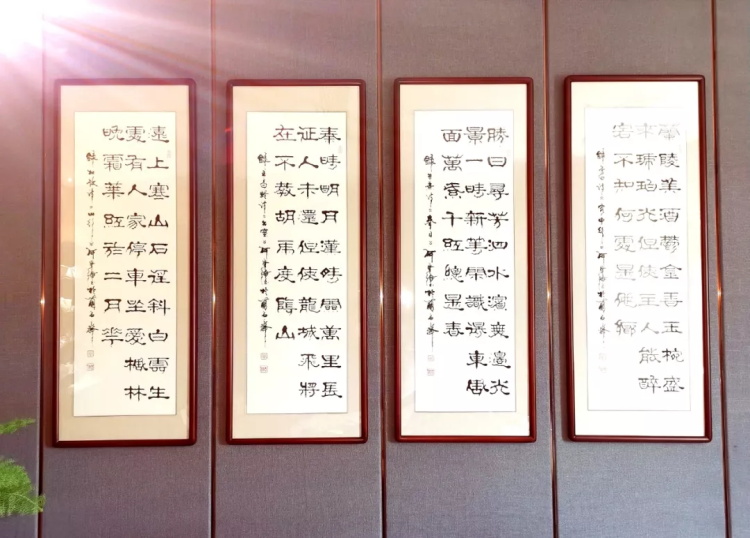 蘭陵美酒鬱金香玉椀盛
來琥珀光但使主人能醉
客不知何處是他鄉
錄李白詩
勝日尋芳泗水濱無邊光
景一時新等閑識得東風
面萬紫千紅總是春
錄朱熹詩春日
秦時明月漢時關萬里長
征人未還但使龍城飛將
在不教胡馬度陰山
錄王昌齡詩出塞
遠上寒山石徑斜白雲生
處有人家停車坐愛楓林
晚霜葉紅於二月花
錄杜牧詩山行